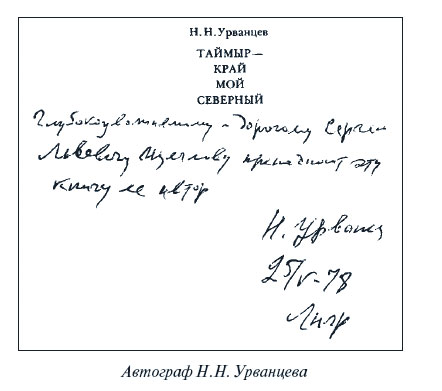 Н. Н. Урванцев
ТАЙМЫР—
КРАЙ
МОЙ
СЕВЕРНЫЙ
Глубокоуважаемому и дорогому Сергею
Львовичу эту
книгу ее автор
Н. Урванц
25/V-78
Автограф Н. Н. Урванцева